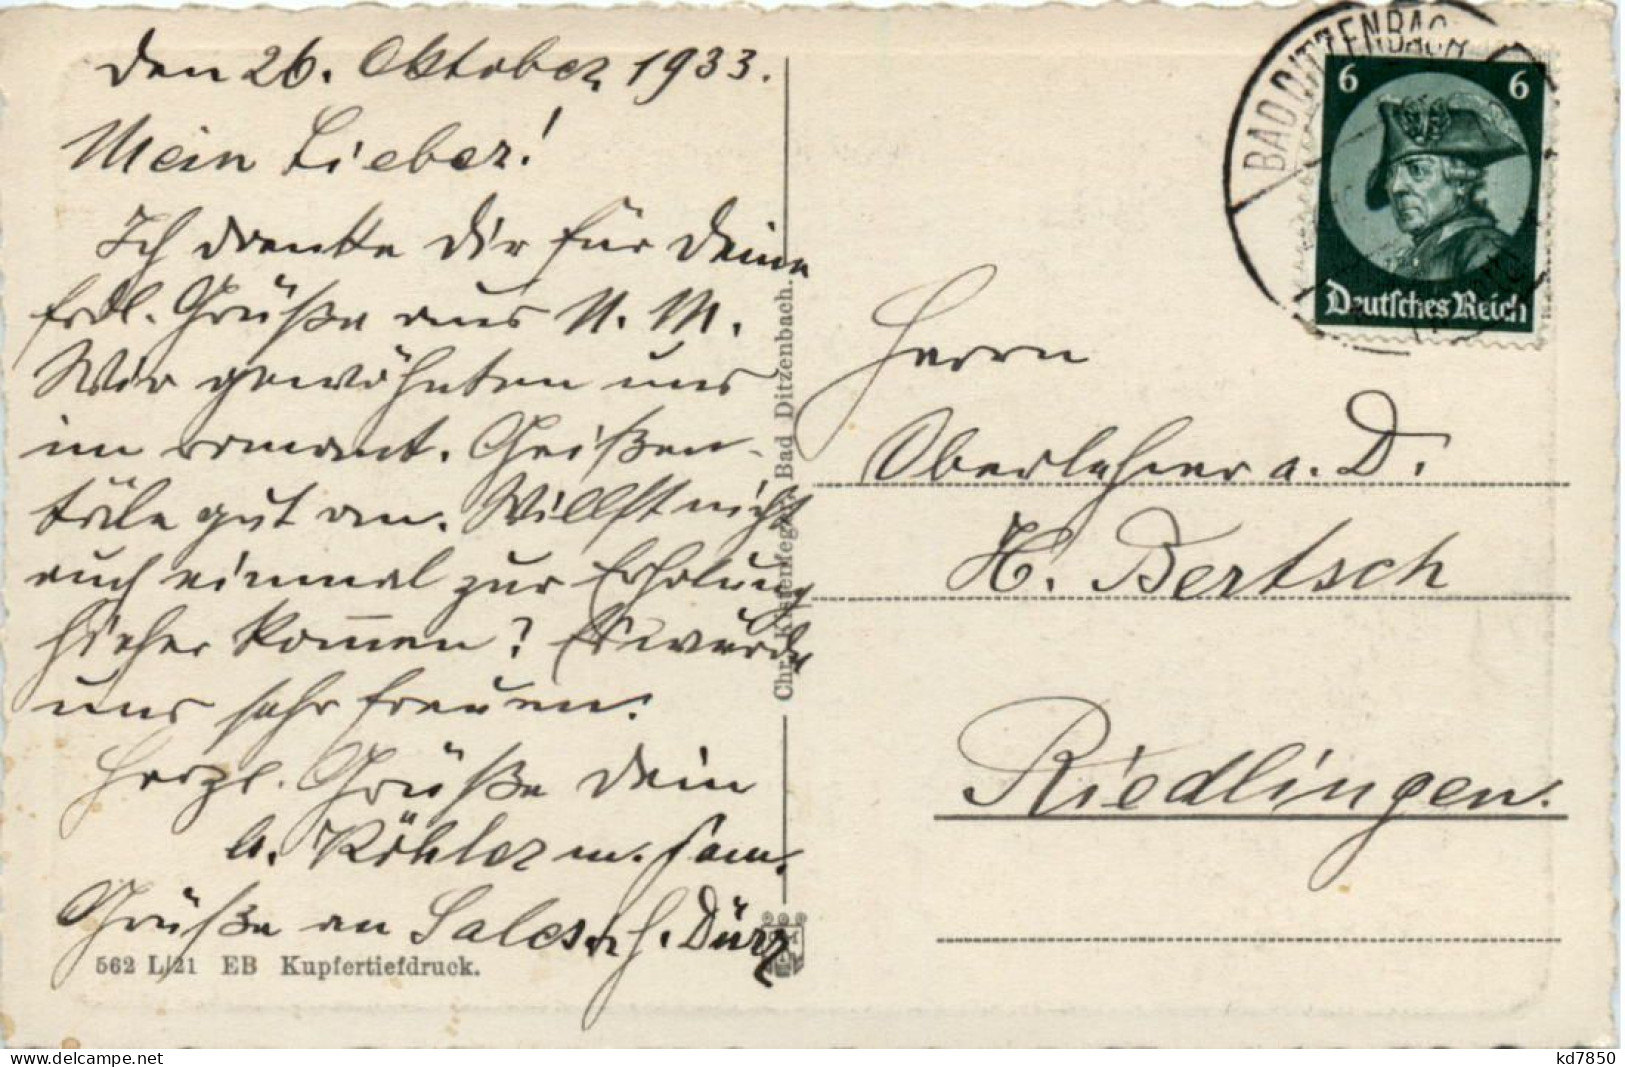 den 26. Oktober 1933.
Mein Lieber!
Ich danke Dir für Deine
frdl. Grüße aus N. M.
Wir gewöhnten uns
im romant. Geißen-
täle gut an. Willst nicht
auch einmal zur Erholung
hieher kommen? Es würde
uns sehr freuen.
Herzl. Grüße Dein
A. Köhler m. Fam.
Grüße an Sales u. H. Dürr
562 L/21 EB Kupfertiefdruck.
Bad Ditzenbach.
BAD DITZENBACH
6 6
Deutsches Reich
Herrn
Oberlehrer a. D.
H. Bertsch
Riedlingen.
kd7850